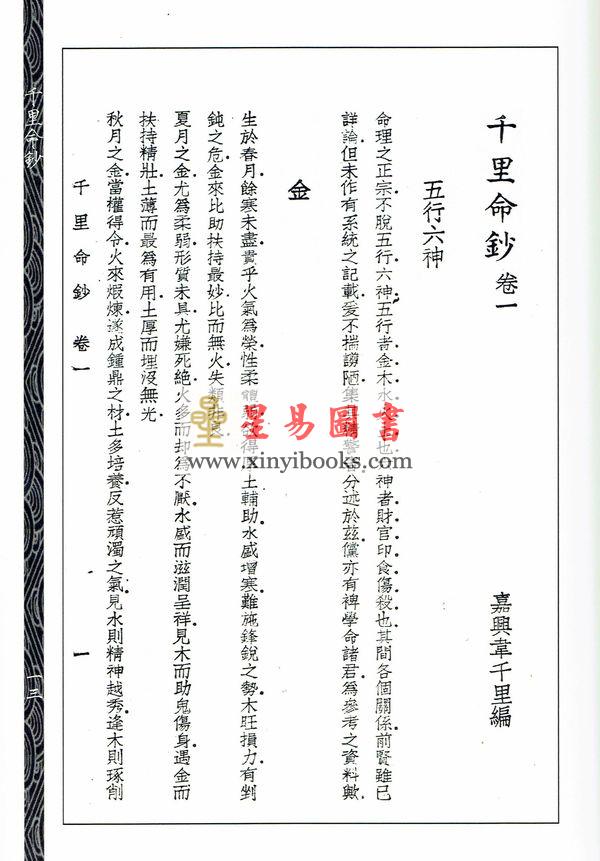 千里命鈔 卷一
嘉興韋千里編
五行六神
命理之正宗不脫五行六神五行者金木水火土也六神者財官印食傷殺也其間各個關係前賢雖已
詳論但未作有系統之記載爰不揣譾陋集其精警者分述於茲儻亦有裨學命諸君為參考之資料歟
金
生於春月餘寒未盡貴乎火氣為榮性柔體弱欲得厚土輔助水盛增寒難施鋒銳之勢木旺損力有剉
鈍之危金來比助扶持最妙比而無火失類非良
夏月之金尤為柔弱形質未具尤嫌死絕火多而却為不厭水盛而滋潤呈祥見木而助鬼傷身遇金而
扶持精壯土薄而最為有用土厚而埋沒無光
秋月之金當權得令火來煆煉遂成鍾鼎之材土多培養反惹頑濁之氣見水則精神越秀逢木則琢削
千里命鈔 卷一 一
千里命鈔
一三
星易圖書
www.xinyibooks.com